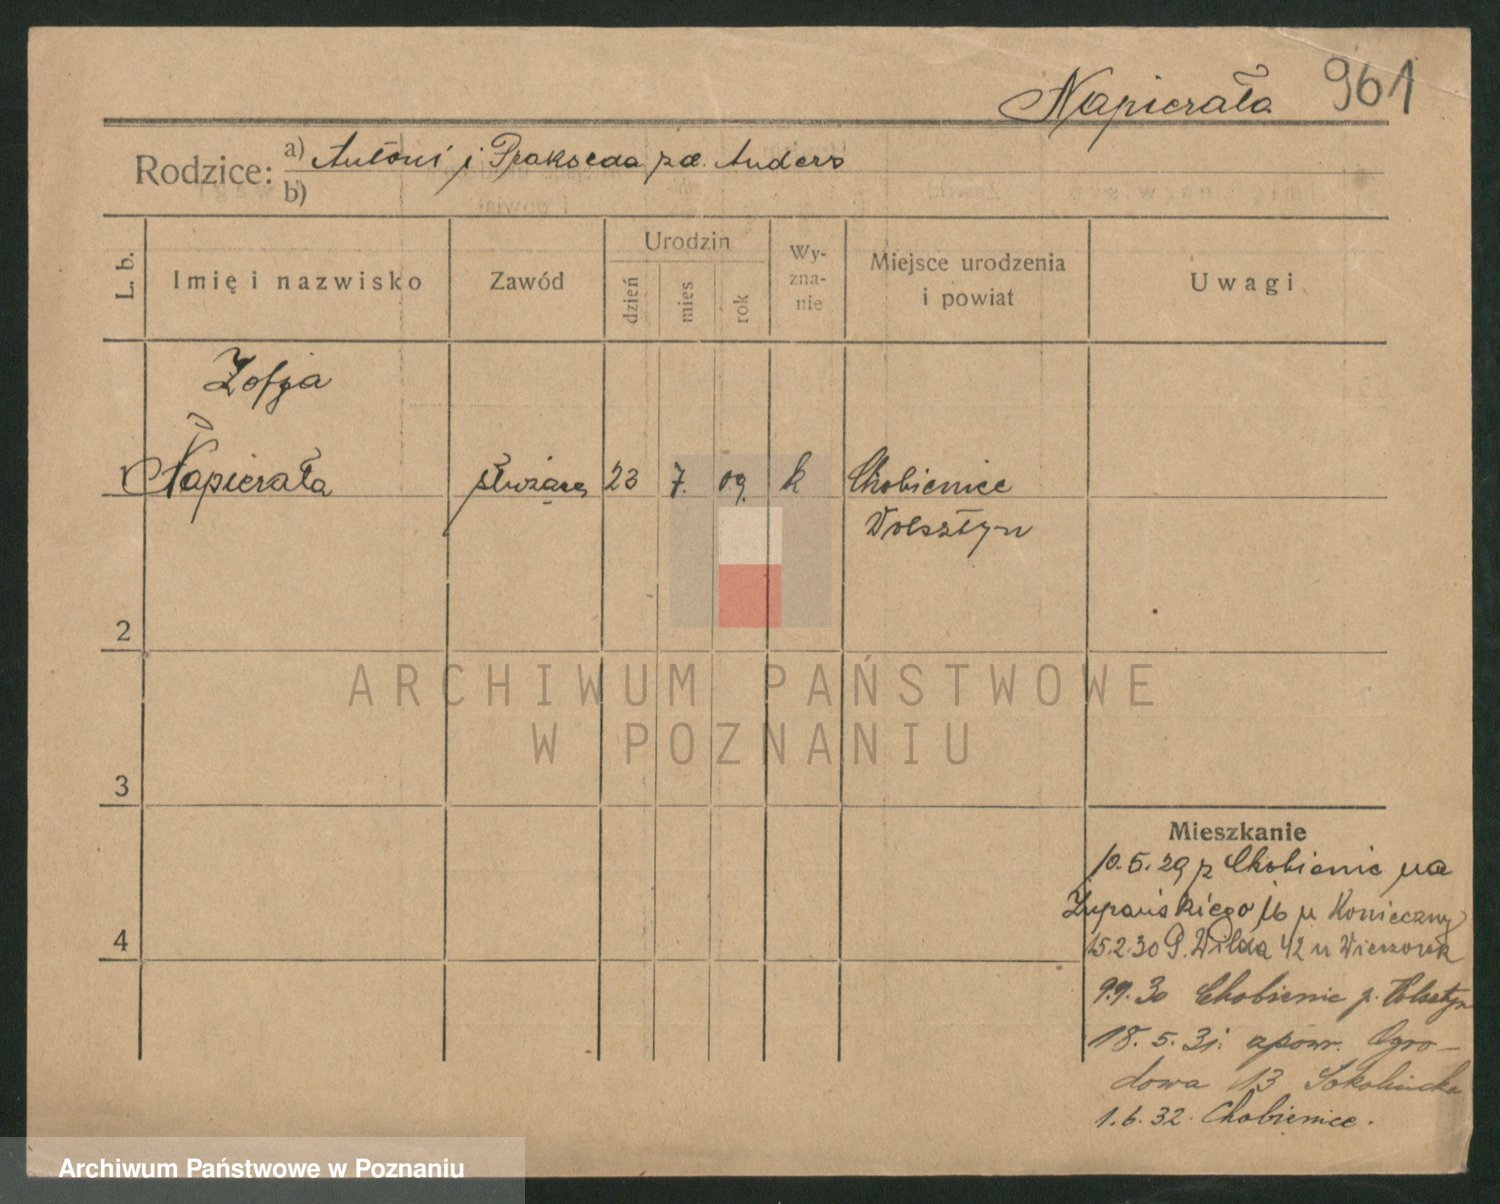 Napierała 961
Rodzice: a) Antoni i Prakseda zd. Anders
b)
L. b. Imię i nazwisko Zawód Urodzin dzień mies rok Wy-zna-nie Miejsce urodzenia i powiat Uwagi
Zofja
1 Napierała służąca 23 7. 09. k Chobienice
Wolsztyn
2
ARCHIWUM PAŃSTWOWE
W POZNANIU
3
Mieszkanie
10.5.29 z Chobienic na
Żupańskiego 16 u Konieczny
4
15.2.30 G. Wilda 42 u Wieczorek
9.9.30 Chobienic p. Wolsztyn
18.5.31. zpowr. Ogro-
dowa 13
1.6.32. Chobienice.
Archiwum Państwowe w Poznaniu